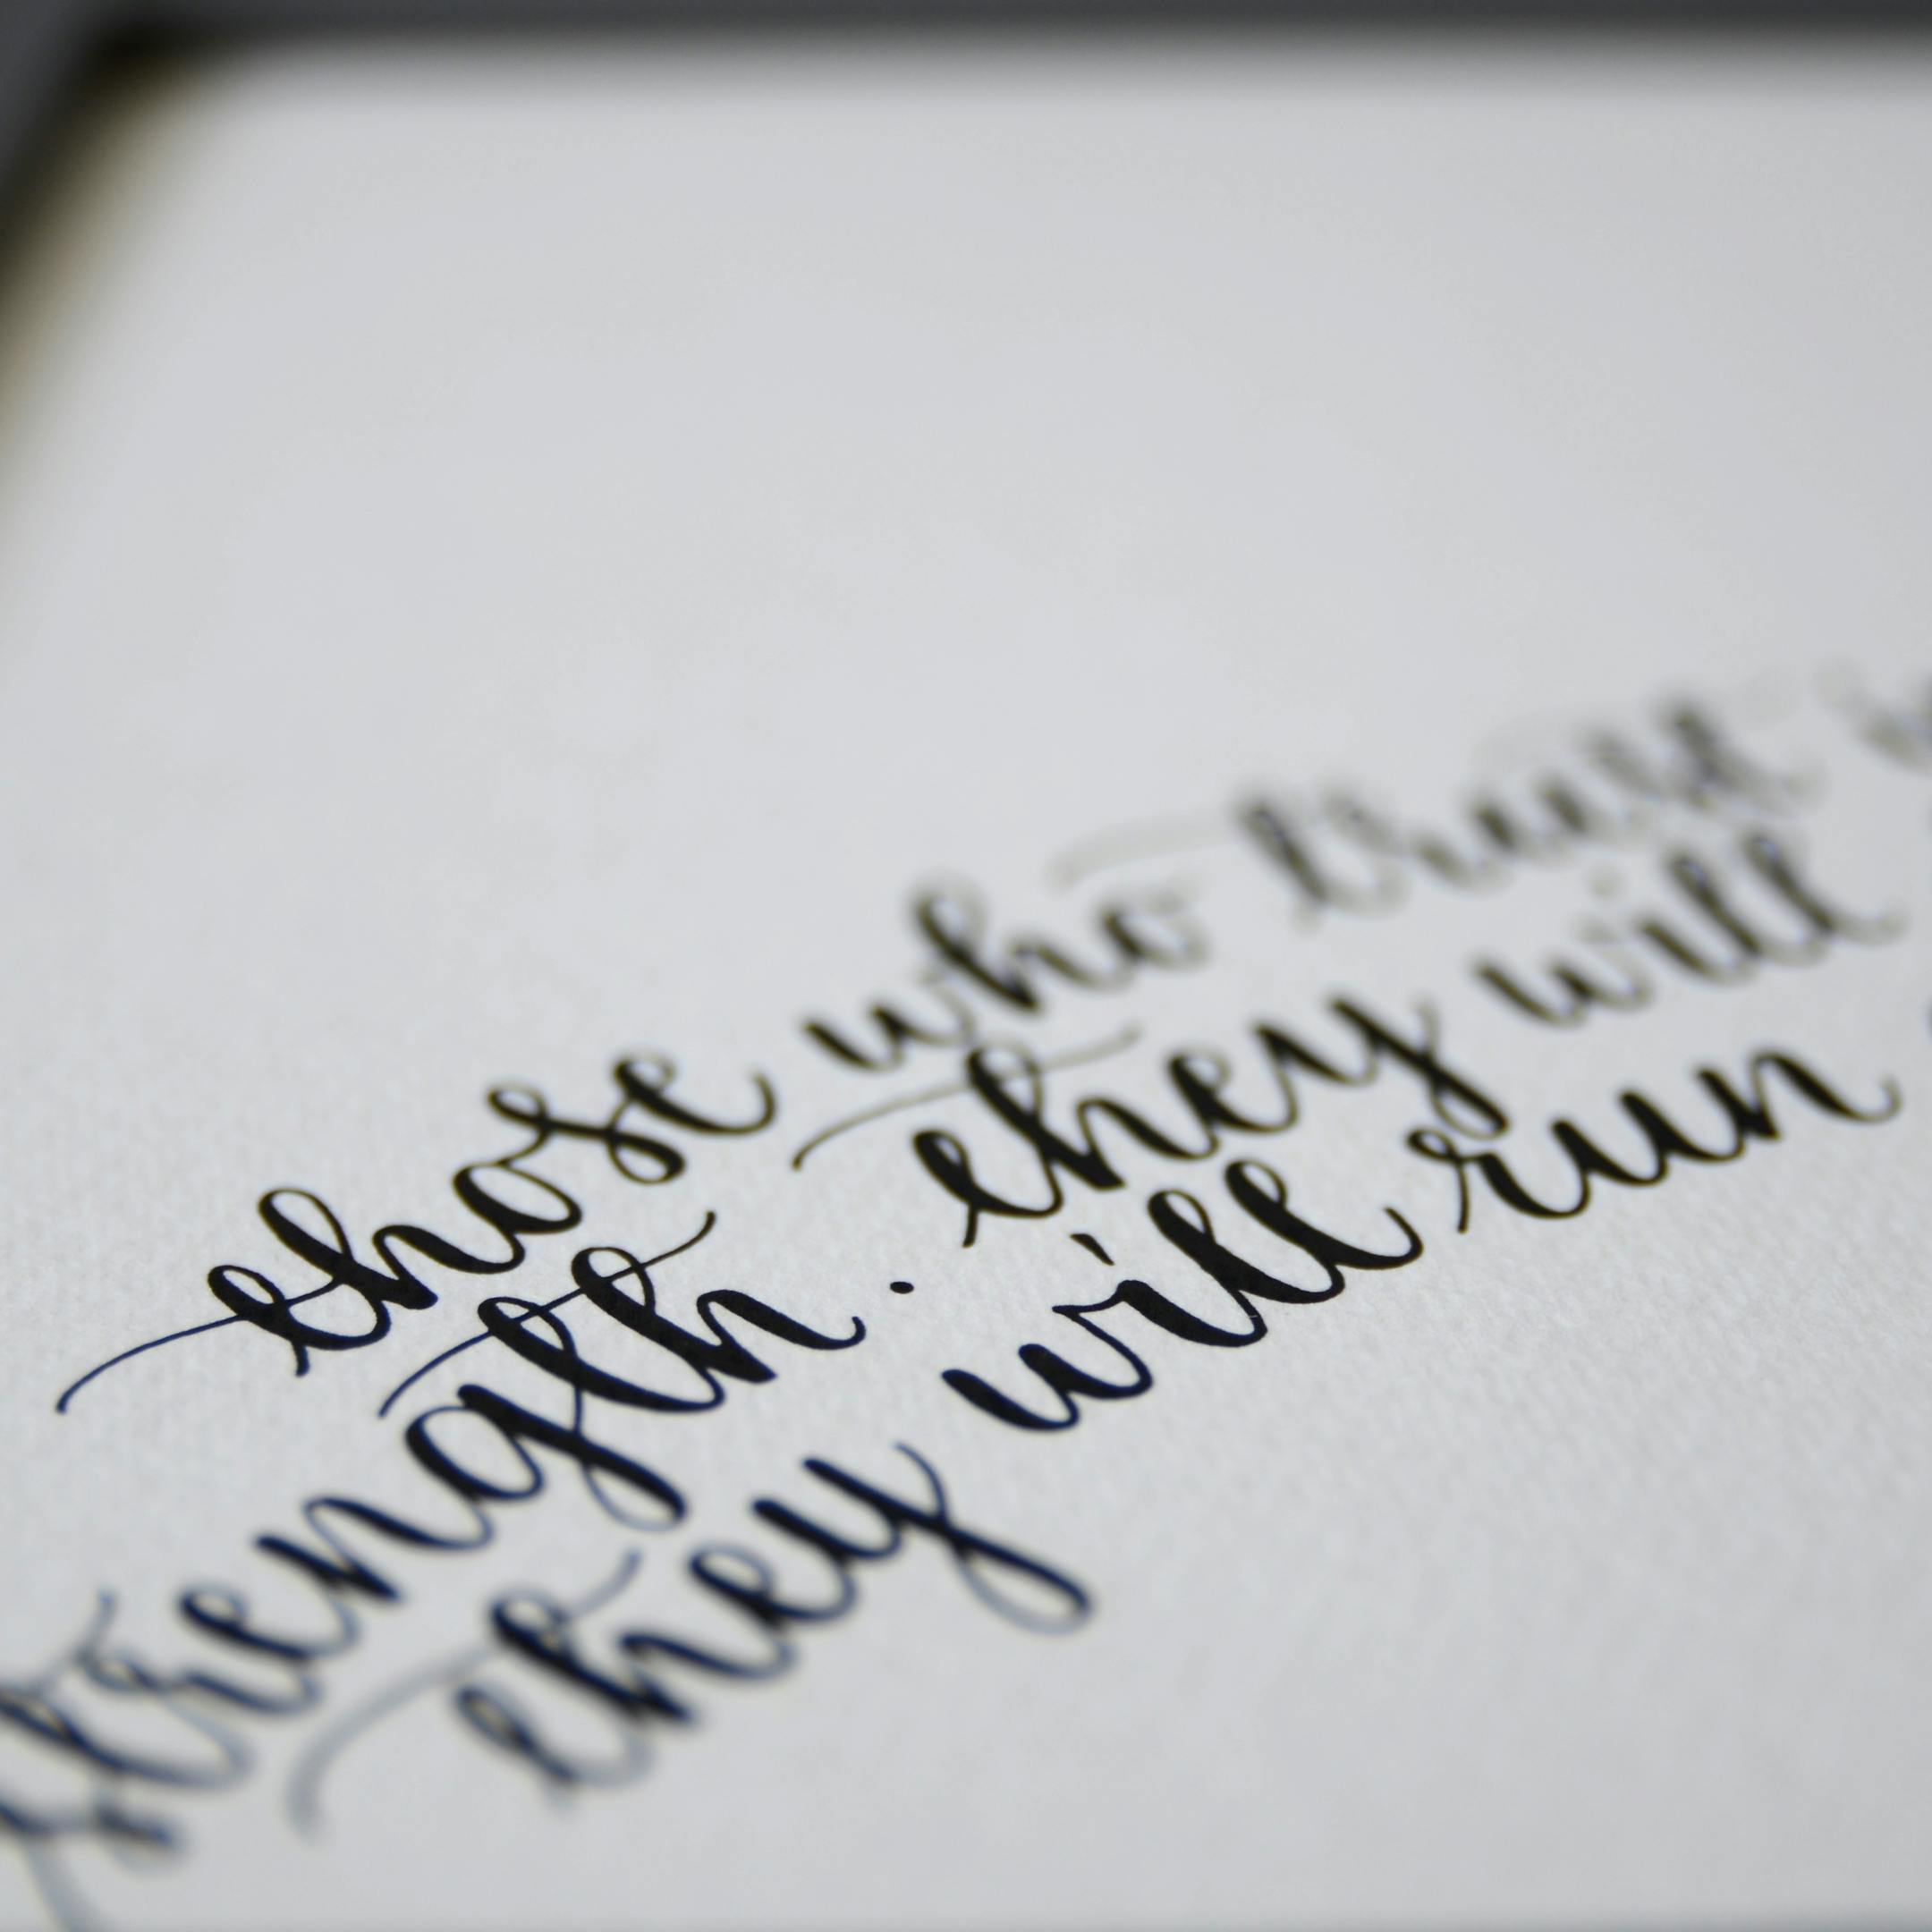 those who trust
strength. they will
they will run